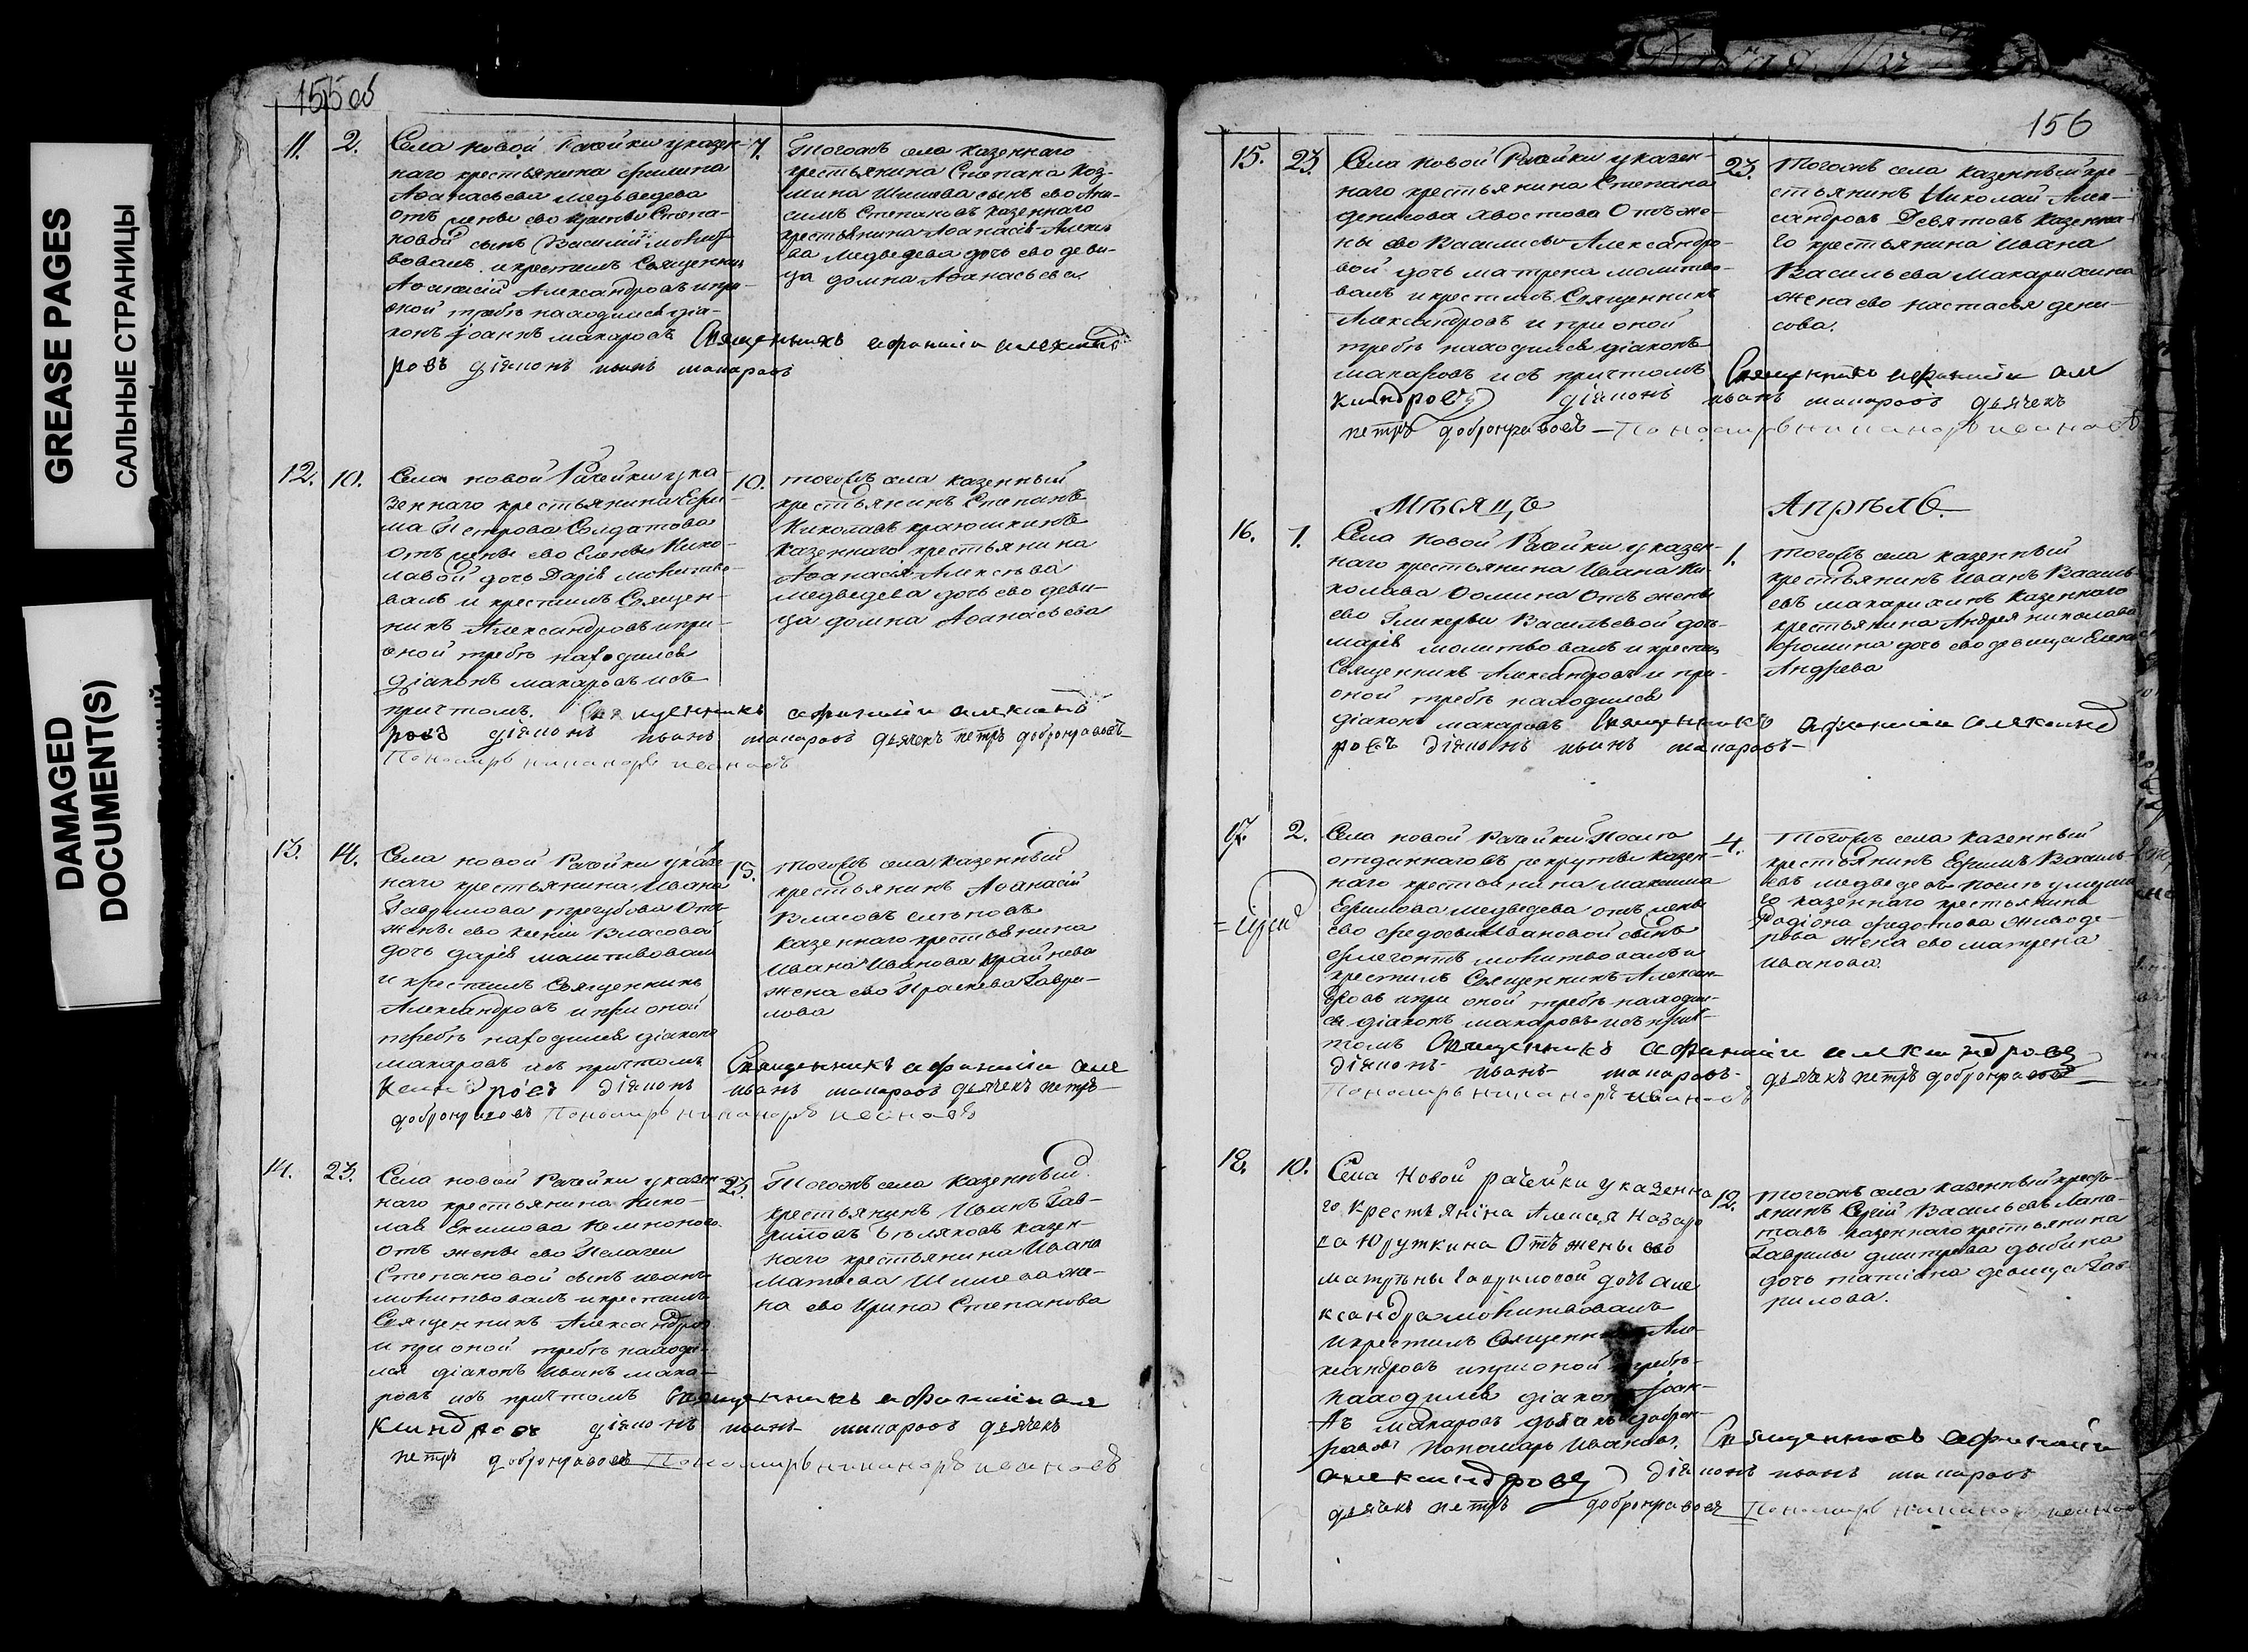 GREASE PAGES
САЛЬНЫЕ СТРАНИЦЫ
DAMAGED
DOCUMENT(S)
155 об
11. 2.
Села новой Рачейки у казен-
наго крестьянина Филипа
Афанасьева медведева
Отъ жены ево Степа-
новой сынъ Василий молитв
вовалъ и крестилъ Священник
Афанасій Александровъ и при
оной требѣ находился діа-
конъ Іоаннъ макаровъ Священникъ афанасіи александ
ровъ діяконъ иванъ макаровъ
7.
Тогожъ села казеннаго
крестьянина Степана Коз-
мина Шишова сынъ ево Ани-
симъ Степановъ казеннаго
крестьянина Афанасія Алексѣ
ва медведева дочь ево деви-
ца домна Афанасьева
12. 10.
Села новой Рачейки у ка
зеннаго крестьянина Ефи-
ма Петрова Солдатова
отъ жены ево Елены Нико-
лавой дочь Дарія молитво-
валъ и крестилъ Священ-
никъ Александровъ и при-
оной требѣ находился
діаконъ макаровъ и съ
причтомъ. Священникъ афанасіи александ
ровъ діяконъ иванъ макаровъ дьячекъ петръ добронравовъ
Пономарь никаноръ ивановъ
10.
тогожъ села казенный
крестьянинъ Степанъ
Николавъ краюшкинъ
казеннаго крестьянина
Афанасія Алексѣва
медведева дочь ево деви-
ца домна Афанасьева
13. 14.
Села новой Рачейки у казе
наго крестьянина Ивана
Гаврилова трегубова Отъ
жены ево Ксении Власовой
дочь дарія молитвовалъ
и крестилъ Священникъ
Александровъ и при оной
требѣ находился діаконъ
макаровъ и съ причтомъ Священникъ афанасіи але
ксандровъ діяконъ иванъ макаровъ дьячекъ петръ
добронравовъ Пономарь никаноръ ивановъ
15.
тогожъ села казенный
крестьянинъ Афанасій
Власовъ
казеннаго крестьянина
Ивана Иванова крайнева
жена ево Праскева Гаври-
лова
14. 23.
Села новой Рачейки у казен
наго крестьянина Нико-
лая Екимова
Отъ жены ево Пелагеи
Степановой сынъ иванъ
молитвовалъ и крестилъ
Священникъ Александров
и при оной требѣ находи-
лся діаконъ Иванъ мака-
ровъ и съ причтомъ Священникъ афанасіи але
ксандровъ діяконъ иванъ макаровъ дьячекъ
петръ добронравовъ Пономарь никаноръ ивановъ
25.
Тогожъ села казенный
крестьянинъ Иванъ Гав-
риловъ Бѣляковъ казен-
наго крестьянина Ивана
Матвѣева Шишова же-
на ево Ирина Степанова
156
15. 23.
Села новой Рачейки у казен-
наго крестьянина Степана
денисова хвостова Отъ же-
ны ево Василисы Александро-
вой дочь матрена молитво-
валъ и крестилъ Священникъ
Александровъ и при оной
требѣ находился діаконъ
макаровъ и съ причтомъ Священникъ афанасіи але
ксандровъ діяконъ иванъ макаровъ дьячекъ
петръ добронравовъ Пономарь никаноръ ивановъ
23.
Тогожъ села казенный кре-
стьянинъ Николай Алек-
сандровъ Девятовъ казенна-
го крестьянина Ивана
Васильева Макарихина
жена ево настасья дени-
сова.
Мѣсяцъ Апрѣль
16. 1.
Села новой Рачейки у казен-
наго крестьянина Ивана Ни-
колава Фомина Отъ жены
ево Гликерьи Васильевой дочь
марія молитвовалъ и крестил
Священникъ Александровъ и при-
оной требѣ находился
діаконъ макаровъ Священникъ афанасіи александ
ровъ діяконъ иванъ макаровъ
1.
тогожъ села казенный
крестьянинъ Иванъ Василь-
евъ макарихинъ казеннаго
крестьянина Андрея николава
фомина дочь ево девица Елена
Андрева
17. 2.
Села новой Рачейки Посил
отданнаго въ рекруты казен-
наго крестьянина максима
Ефимова медведева отъ жены
ево федосьи Ивановой сынъ
флегонтъ молитвовалъ и
крестилъ Священникъ Алексан-
дровъ и при оной требѣ находил-
ся діаконъ макаровъ и съ прич-
томъ Священникъ афанасіи александровъ
діяконъ иванъ макаровъ дьячекъ петръ добронравовъ
Пономарь никаноръ ивановъ
4.
Тогожъ села казенный
крестьянинъ Ефимъ Василь-
евъ медведевъ умерша
го казеннаго крестьянина
Родіона федотова
жена ево матрена
Иванова.
18. 10.
Села Новой рачейки у казенна
го крестьяніна Алексея Назаро
ва Юруткина Отъ жены ево
матрѣны Гавриловой дочь але
ксандра молитвовалъ
и крестилъ Священникъ Але-
ксандровъ и при оной требѣ-
находился діаконъ Іоан-
нъ макаровъ дьячекъ доброн-
равовъ Пономарь Ивановъ. Священникъ афанасіи
александровъ діяконъ иванъ макаровъ
дьячекъ петръ добронравовъ Пономарь никаноръ ивановъ
12.
тогожъ села казенный кресть-
янинъ Сергій Васильевъ Лапа-
товъ казеннаго крестьянина
Гаврилы дмитрева дыбина
дочь татіана девица Гав-
рилова.